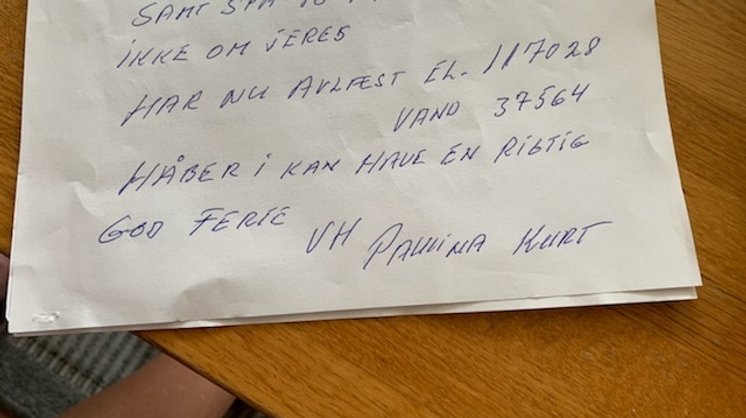 SAMT
IKKE OM JERES
HAR NU AVLÆST EL. 117028
VAND 37564
HÅBER I KAN HAVE EN RIGTIG
GOD FERIE
VH PAULINA KURT